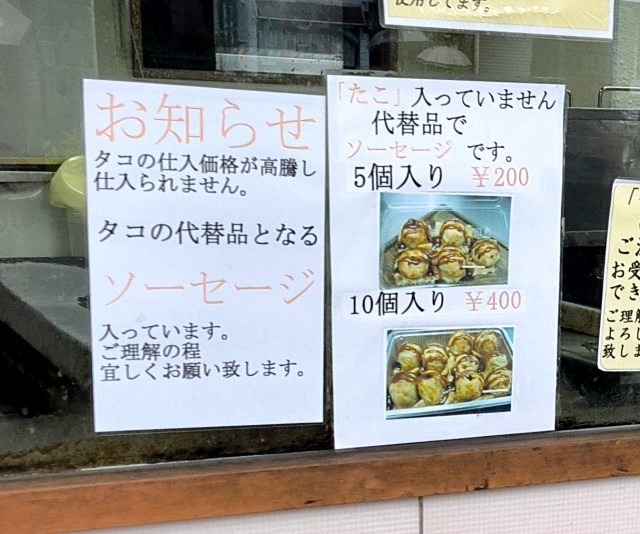 使用してます。
お知らせ
タコの仕入価格が高騰し
仕入られません。
タコの代替品となる
ソーセージ
入っています。
ご理解の程
宜しくお願い致します。
「たこ」入っていません
代替品で
ソーセージ です。
5個入り ¥200
10個入り ¥400
お受
でき
ご理解
よろし
致しま